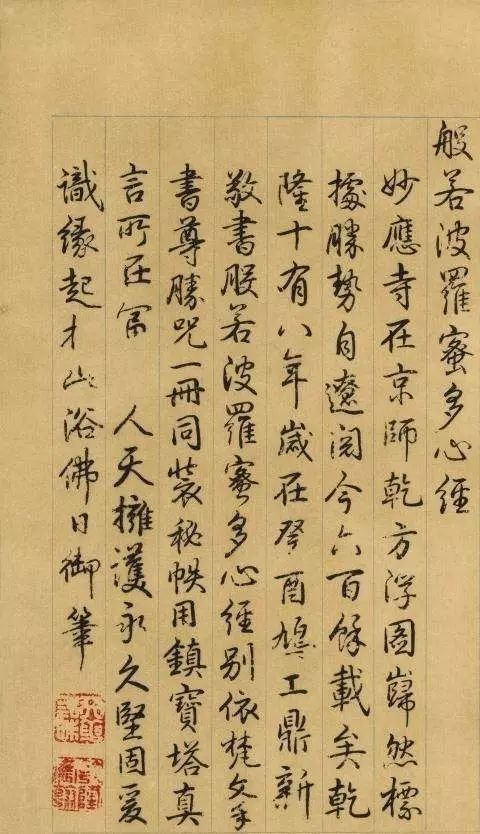 般若波羅蜜多心經
妙應寺在京師乾方浮圖巋然標
據勝勢自遼閱今六百餘載矣乾
隆十有八年歲在癸酉鳩工鼎新
敬書般若波羅蜜多心經別依梵文手
書尊勝咒一冊同裝秘帙用鎮寶塔真
言所在 人天擁護永久堅固爰
識緣起於此浴佛日御筆